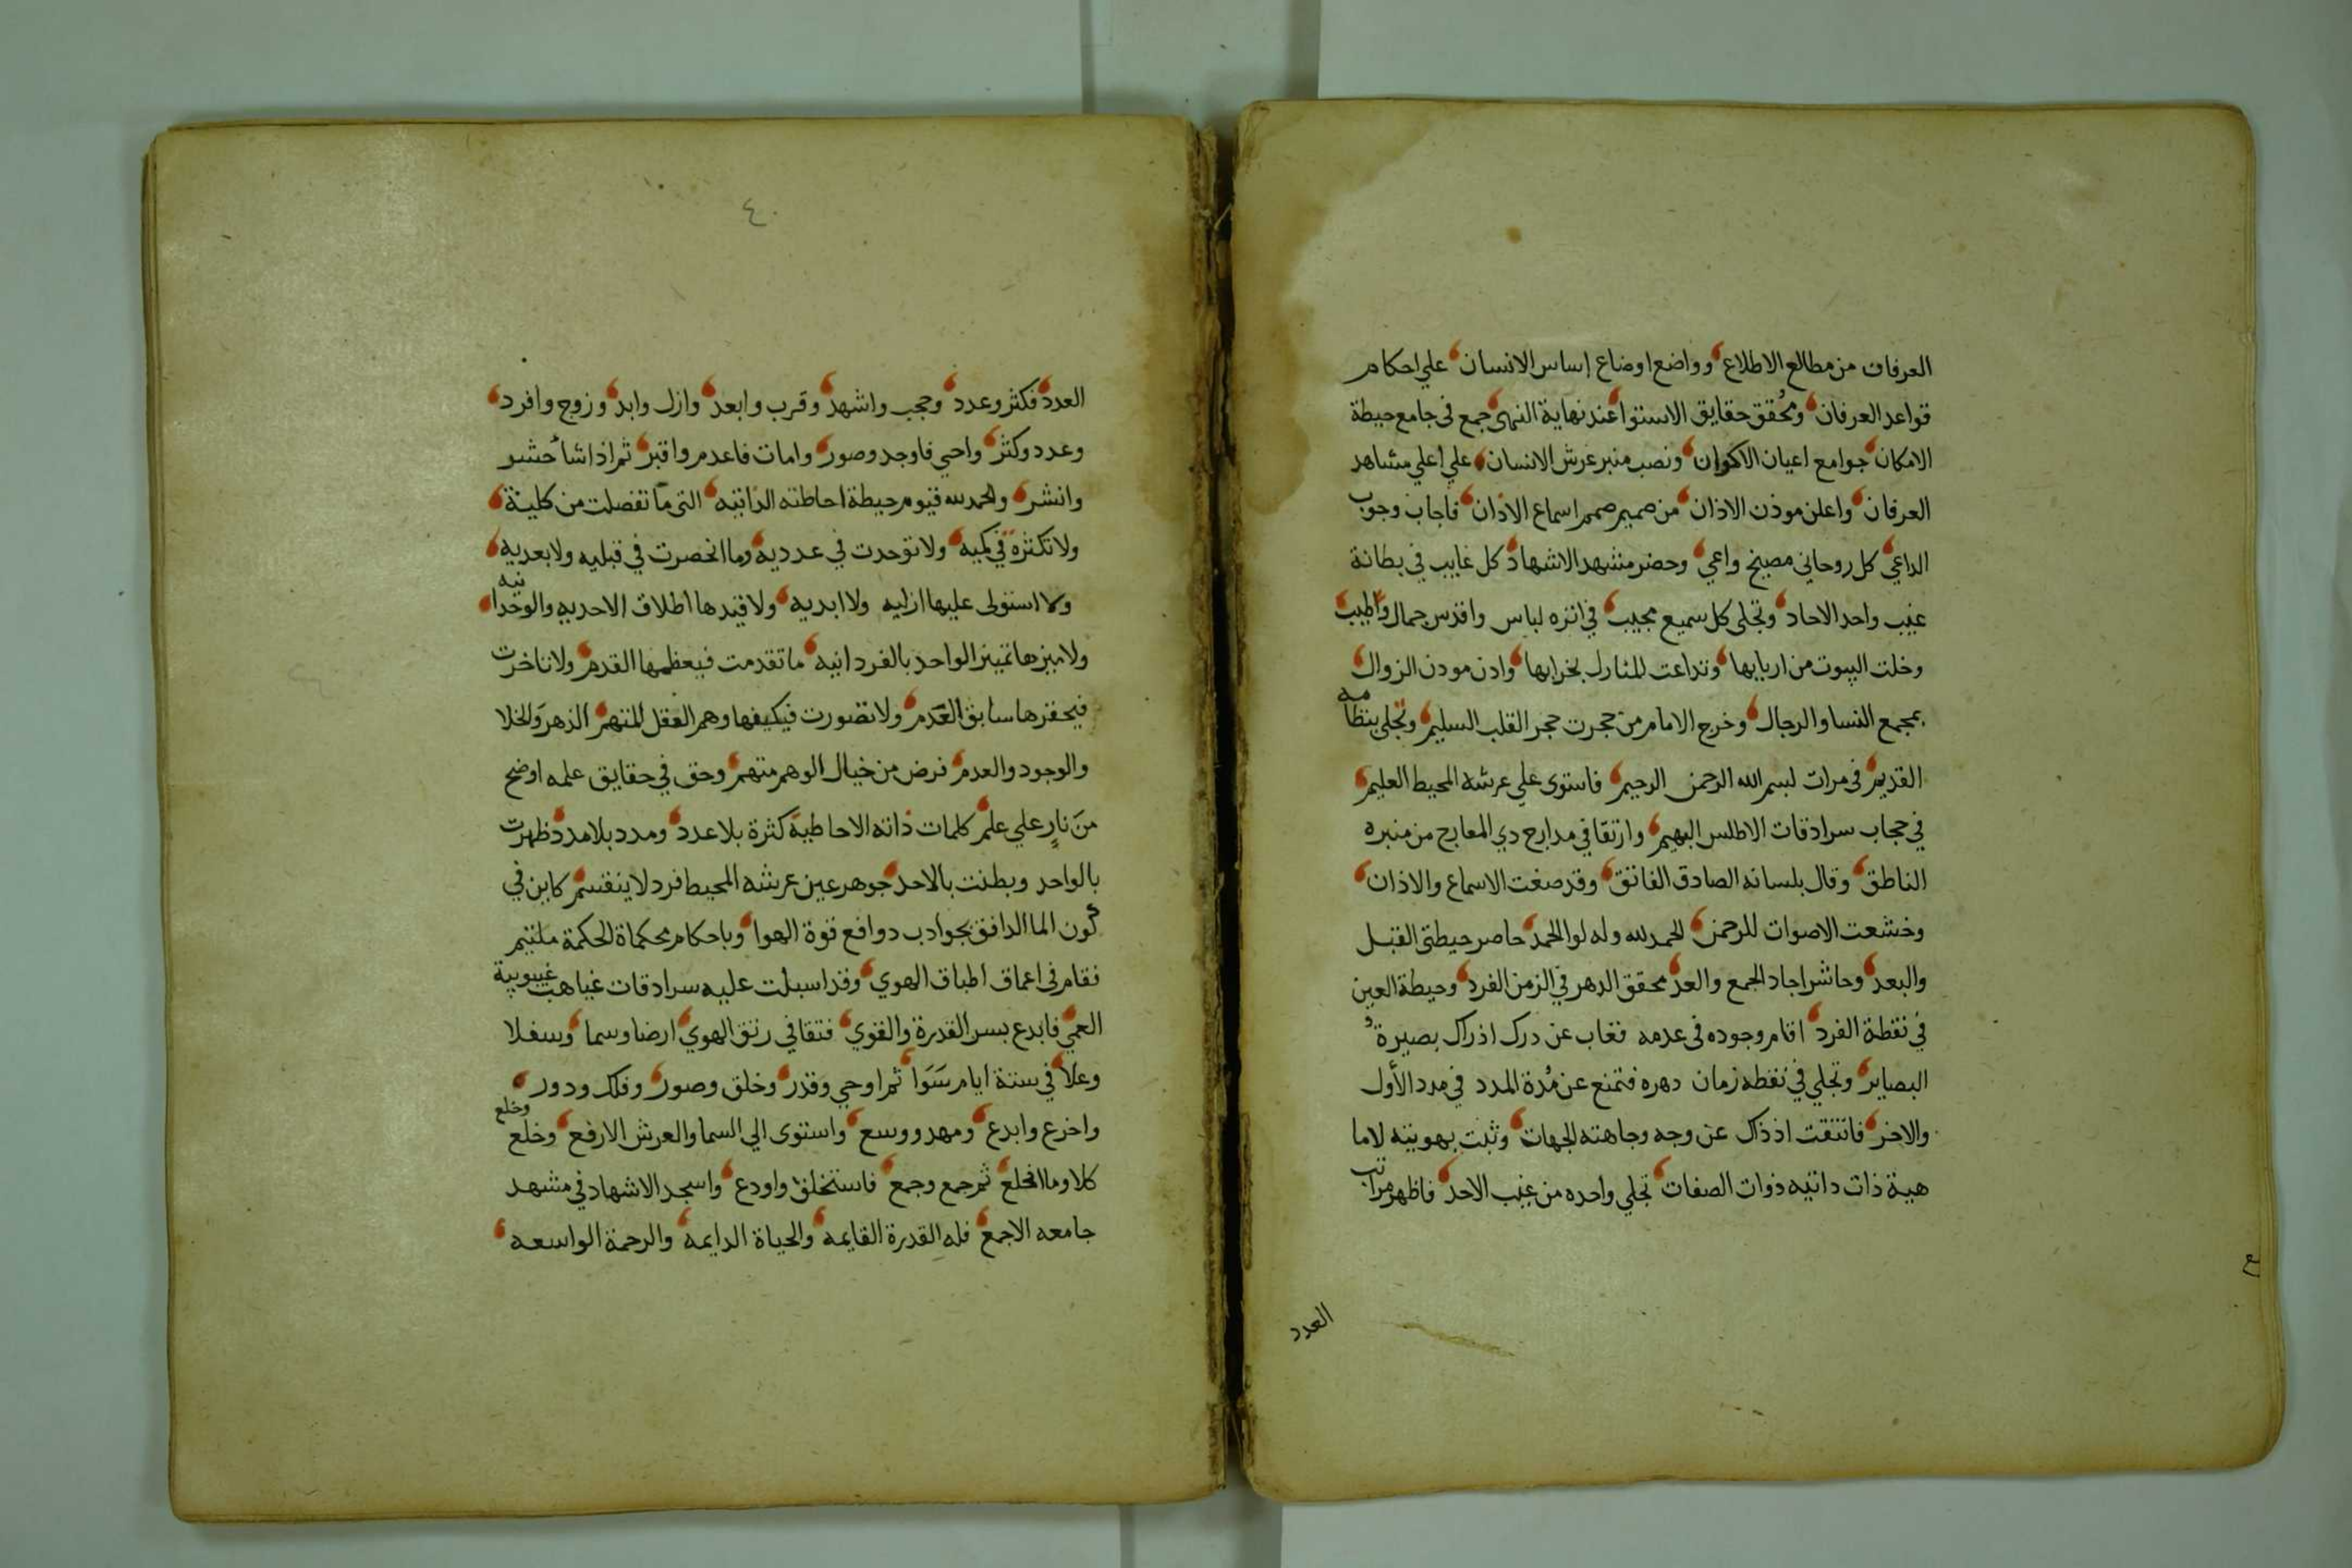 العرفان من مطالع الاطلاع وواضع اوضاع اساس الانسان علي احكام
قواعد العرفان ومحقق حقايق الاستوا عند نهاية النهى جمع في جامع حيطة
الامكان جوامع اعيان الاكوان ونصب منبر عرش الانسان علي اعلي مشاهد
العرفان واعلن موذن الاذان من صميم صمم اسماع الاذان فاجاب وجوب
الداعي كل روحاني مصيخ واعي وحضر مشهد الاشهاد كل غايب في بطانة
غيب واحد الاحاد وتجلى كل سميع مجيب في انزه لباس واقدس جمال واطيب
وخلت البيوت من اربابها وتداعت المنازل بخرابها واذن موذن الزوال
بمجمع النسا والرجال وخرج الامام من حجرت حجر القلب السليم وتجلى بنظامه
القديم في مرات بسم الله الرحمن الرحيم فاستوى علي عرشه المحيط العليم
في حجاب سرادقات الاطلس البهيم وارتقا في مدارج دي المعارج من منبره
الناطق وقال بلسانه الصادق الفاتق وقد صغت الاسماع والاذان
وخشعت الاصوات للرحمن الحمد لله وله لوا الحمد حاصر حيطتى القبل
والبعد وحاشر احاد الجمع والعد محقق الدهر في الزمن الفرد وحيطة العين
في نقطة الفرد اقام وجوده في عدمه فغاب عن درك ادراك بصيرة
البصاير وتجلي في نقطه زمان دهره فتمنع عن مدة المدد في مدد الأول
والاخر فانتفت اذذاك عن وجه وجاهته الجهات وثبت بهويته لاما
هية ذات داتيه ذوات الصفات تجلي واحده من غيب الاحد فاظهر مراتب
العدد
٤
العدد فكثر وعدد وحجب واشهد وقرب وابعد وازل وابد وزوج وافرد
وعدد وكثر واحي فاوجد وصور وامات فاعدم واقبر ثم اذا شا حشر
وانشر والحمد لله قيوم حيطة احاطته الذاتيه التي ما تفصلت من كلية
ولا تكثرة في كميه ولا توحدت في عدديه وما انحصرت في قبليه ولا بعديه
ولا استولى عليها ازليه ولا ابديه ولا قيدها اطلاق الاحديه والوحدانيه
ولا ميزها تمييز الواحد بالفردانيه ما تقدمت فيعظمها القدم ولا تاخرت
فيحقرها سابق العدم ولا تصورت فيكيفها وهم العقل المتهم الدهر والخلا
والوجود والعدم فرض من خيال الوهم متهم وحق في حقايق علمه اوضح
من نار علي علم كلمات ذاته الاحاطية كثرة بلا عدد ومدد بلا مدد ظهرت
بالواحد وبطنت بالاحد جوهر عين عرشه المحيط فرد لا ينقسم كاين في
كون الما الدافق بجوادب دوافع قوة الهوا وباحكام محكماة الحكمة ملتيم
فقام في اعماق اطباق الهوي وقد اسبلت عليه سرادقات غياهب غيبوبية
العمي فابدع بسر القدرة والقوي فتقا في رتق الهوي ارضا وسما وسفلا
وعلا في ستة ايام سوا ثم اوحي وقدر وخلق وصور وفلك ودور
واخرع وابدع ومهد ووسع واستوى الي السما والعرش الارفع وخلع وخلع
كلا وما انخلع ثم رجمع وجمع فاستخلف واودع واسجد الاشهاد في مشهد
جامعه الاجمع فله القدرة القايمه والحياة الدايمه والرحمة الواسعه